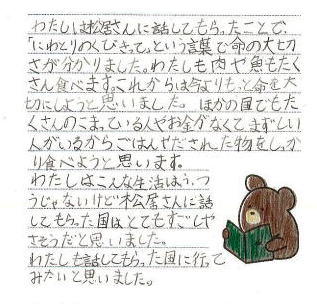 わたしは松居さんに話してもらったことで、
「にわとりのくびきって」という言葉で命の大切
さが分かりました。わたしも肉や魚もたく
さん食べます。これからは今よりもっと命を大
切にしようと思いました。ほかの国でもた
くさんのこまっている人やお金がなくてまずしい
人がいるからごはんやだされた物をしっか
り食べようと思います。
わたしはこんな生活はふつ
うじゃないけど松居さんに話
してもらった国はとてもすごしや
さそうだと思いました。
わたしも話してもらった国に行って
みたいと思いました。